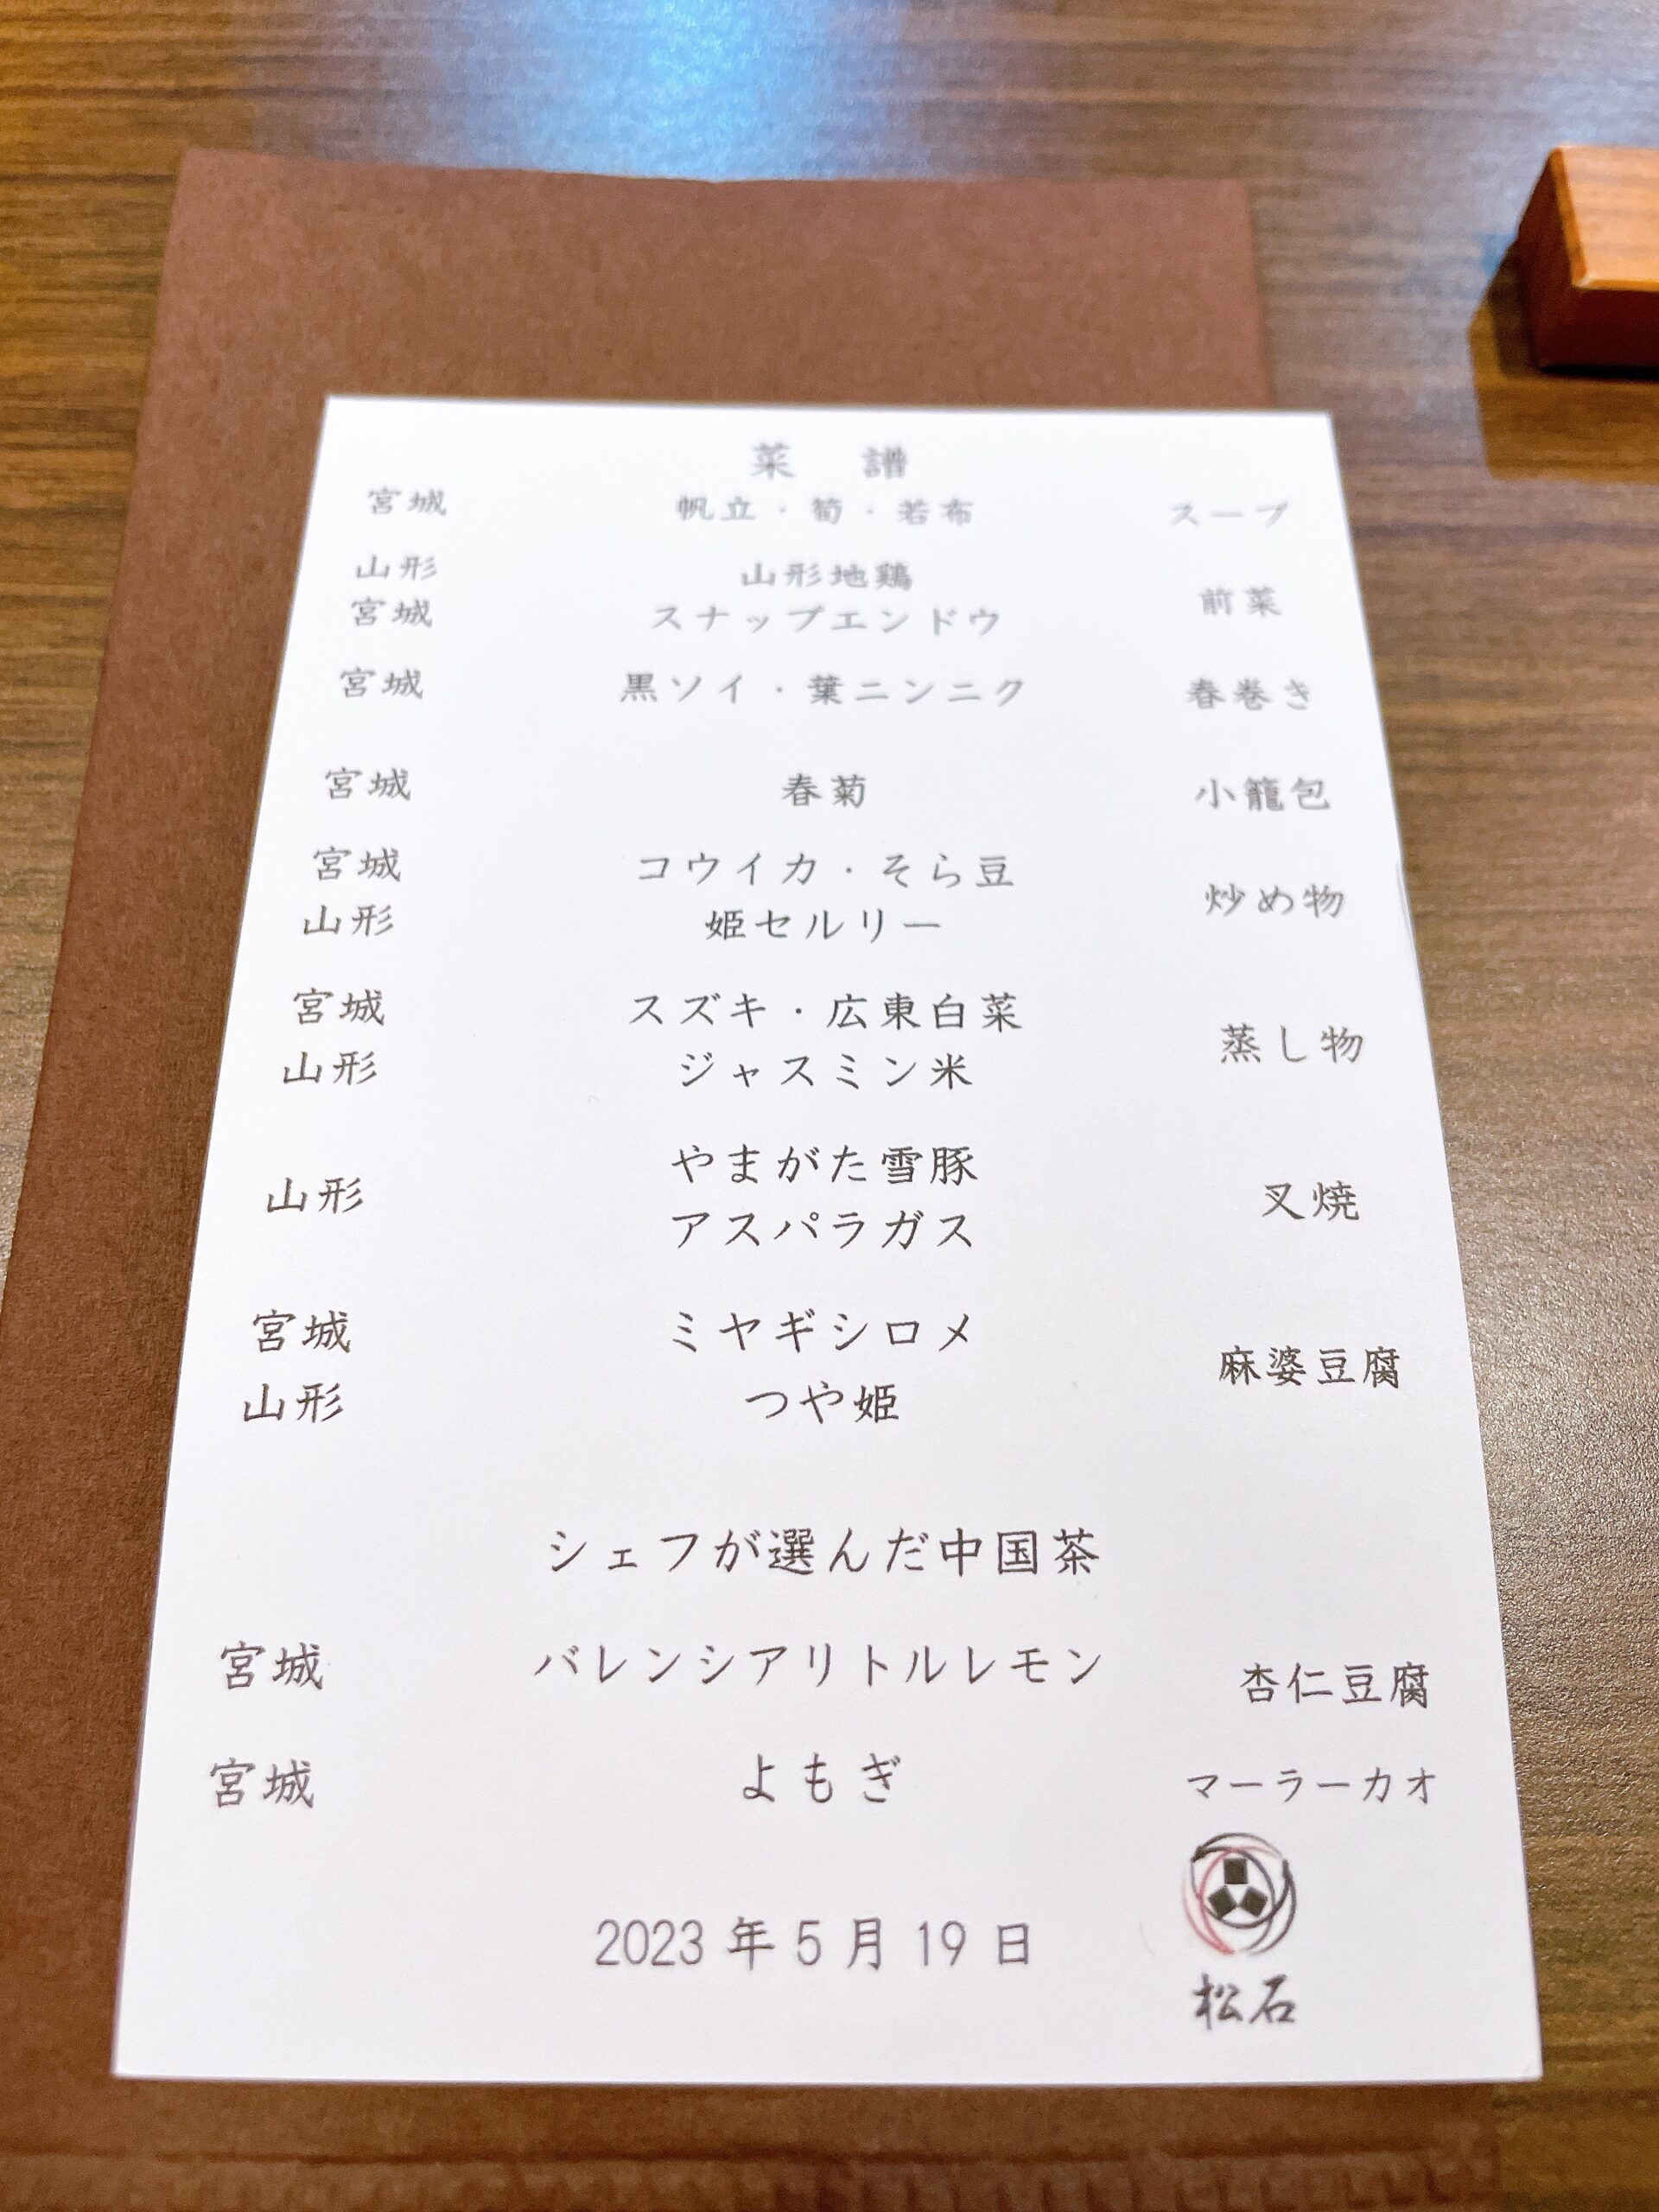 菜 譜
宮城 帆立・筍・若布 スープ
山形 山形地鶏
宮城 スナップエンドウ 前菜
宮城 黒ソイ・葉ニンニク 春巻き
宮城 春菊 小籠包
宮城 コウイカ・そら豆 炒め物
山形 姫セルリー
宮城 スズキ・広東白菜 蒸し物
山形 ジャスミン米
やまがた雪豚
山形 叉焼
アスパラガス
宮城 ミヤギシロメ 麻婆豆腐
山形 つや姫
シェフが選んだ中国茶
宮城 バレンシアリトルレモン 杏仁豆腐
宮城 よもぎ マーラーカオ
2023年5月19日
松石